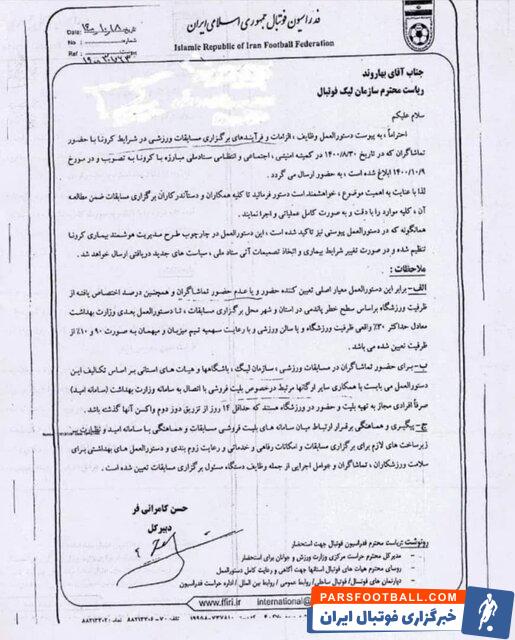 فدراسیون فوتبال جمهوری اسلامی ایران
Islamic Republic of Iran Football Federation
Date:
No :
جناب آقای بهاروند
ریاست محترم سازمان لیگ فوتبال
سلام علیکم
احتراماً ، به پیوست دستورالعمل وظایف ، الزامات و فرآیندهای برگزاری مسابقات ورزشی در شرایط کرونا با حضور
تماشاگران که در تاریخ ۱۴۰۰/۸/۳۰ در کمیته امنیتی ، اجتماعی و انتظامی ستادملی مبارزه با کرونا به تصویب و در مورخ
۱۴۰۰/۱۰/۹ ابلاغ شده است ، به حضور ارسال می گردد .
لذا با عنایت به اهمیت موضوع ، خواهشمند است دستور فرمائید تا کلیه همکاران و دستاندرکاران برگزاری مسابقات ضمن مطالعه
آن ، کلیه موارد را با دقت و به صورت کامل عملیاتی و اجرا نمایند .
همانگونه که در دستورالعمل پیوستی نیز تاکید شده است ، این دستورالعمل در چارچوب طرح مدیریت هوشمند بیماری کرونا
تنظیم شده و در صورت تغییر شرایط بیماری و اتخاذ تصمیمات آتی ستاد ملی ، سیاست های جدید دریافتی ارسال خواهد شد .
ملاحظات :
الف- برابر این دستورالعمل معیار اصلی تعیین کننده حضور و یا عدم حضور تماشاگران و همچنین درصد اختصاص یافته از
ظرفیت ورزشگاه براساس سطح خطر پاندمی در استان و شهر محل برگزاری مسابقات ، تا دستورالعمل بعدی وزارت بهداشت
معادل حداکثر ۳۰٪ واقعی ظرفیت ورزشگاه و یا سالن ورزشی و با رعایت سهمیه تیم میزبان و میهمان به صورت ۹۰ و ۱۰٪ از
ظرفیت تعیین شده می باشد .
ب- برای حضور تماشاگران در مسابقات ورزشی ، سازمان لیگ ، باشگاهها و هیات های استانی بر اساس تکالیف این
دستورالعمل می بایست با همکاری سایر ارگانها مرتبط درخصوص بلیت فروشی با اتصال به سامانه وزارت بهداشت (سامانه امید)
صرفاً افرادی مجاز به تهیه بلیت و حضور در ورزشگاه هستند که حداقل ۱۴ روز از تزریق دوز دوم واکسن آنها گذشته باشد .
ج- پیگیری و هماهنگی برقرار ارتباط میان سامانه های بلیت فروشی مسابقات و هماهنگی با سامانه امید و نظارت بر
زیرساخت های لازم برای برگزاری مسابقات و امکانات رفاهی و خدماتی و رعایت زوم بندی و دستورالعمل های بهداشتی برای
سلامت ورزشکاران ، تماشاگران و عوامل اجرایی از جمله وظایف دستگاه مسئول برگزاری مسابقات تعیین شده است .
حسن کامرانی فر
دبیرکل
رونوشت : ریاست محترم فدراسیون فوتبال جهت استحضار
مدیرکل محترم حراست مرکزی وزارت ورزش و جوانان برای استحضار
روسای محترم هیات های فوتبال استانها جهت آگاهی و رعایت کامل دستورالعمل
دپارتمان های فوتسال / فوتبال ساحلی / روابط عمومی / روابط بین الملل / اداره حراست فدراسیون
www.ffiri.ir
international@
PARSFOOTBALL.COM
خبرگزاری فوتبال ایران